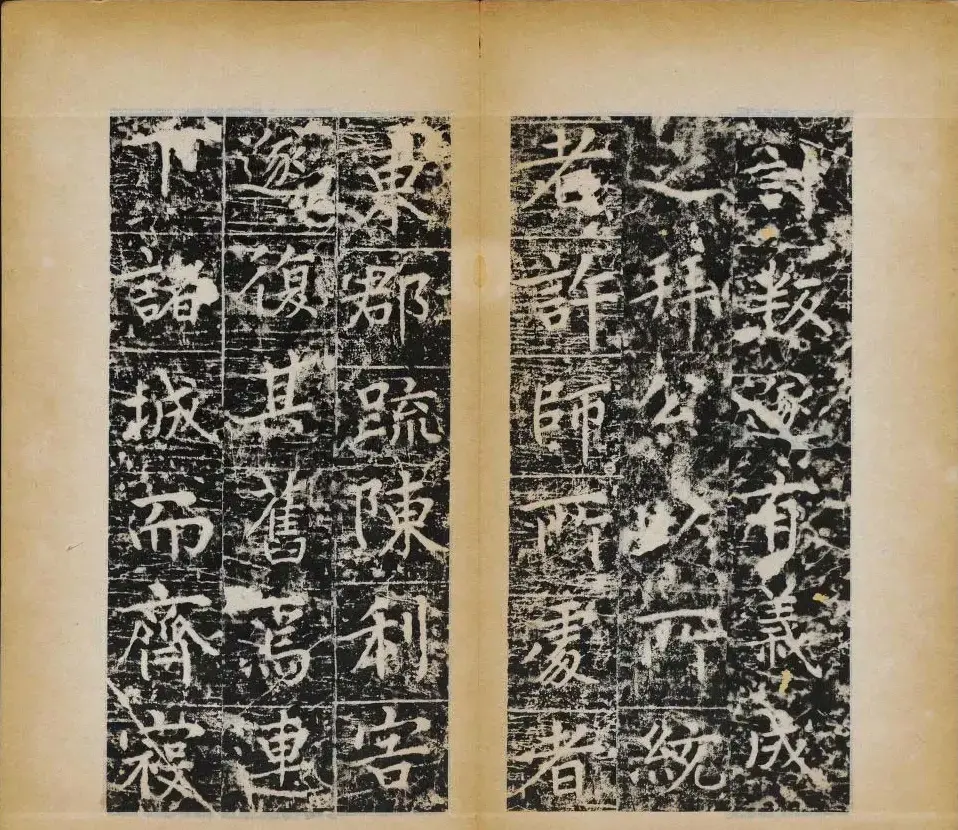 討叛遂有義成
之拜公以所統
者許師所處者
東郡疏陳利害
遂復其舊焉連
下諸城而齊寇